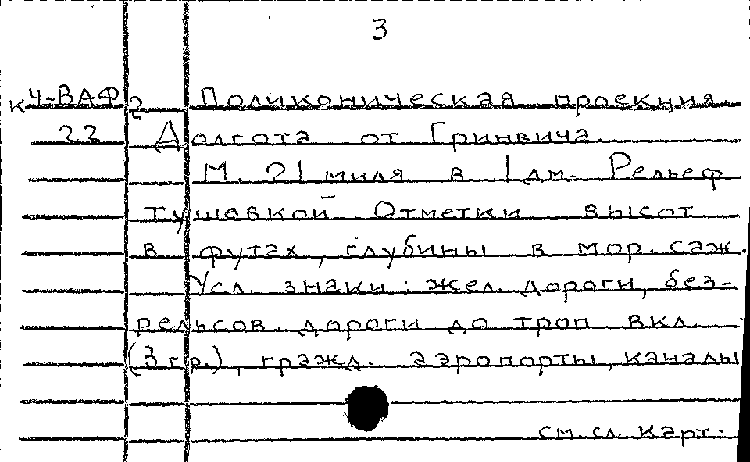 3
К 4-ВАФ 2 Поликоническая проекция
22 Долгота от Гринвича.
М. 21 миля в 1 дм. Рельеф
тушевкой. Отметки высот
в футах, глубины в мор. саж.
Усл. знаки: жел. дороги, без-
рельсов. дороги до троп вкл.
(3 гр.), гражд. аэропорты, каналы
см. сл. карт.